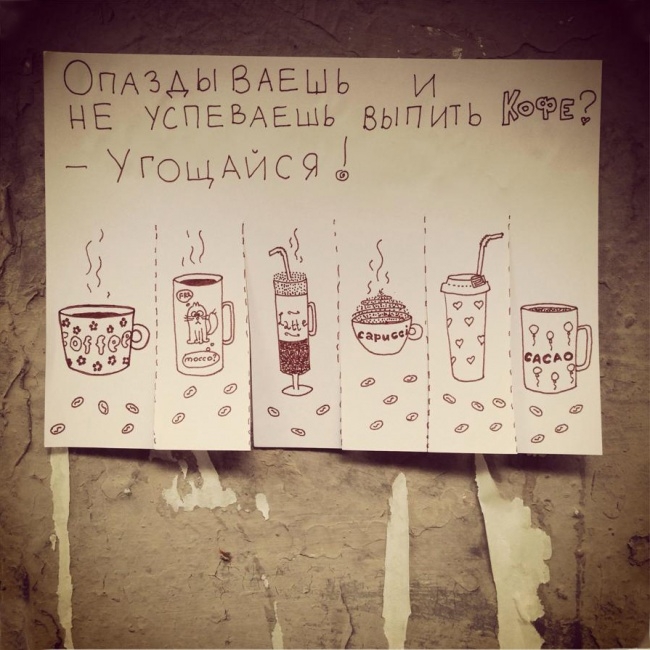 ОПАЗДЫВАЕШЬ И
НЕ УСПЕВАЕШЬ ВЫПИТЬ КОФЕ?
– УГОЩАЙСЯ!
COFFEE
morco?
Latte
capucci
CACAO